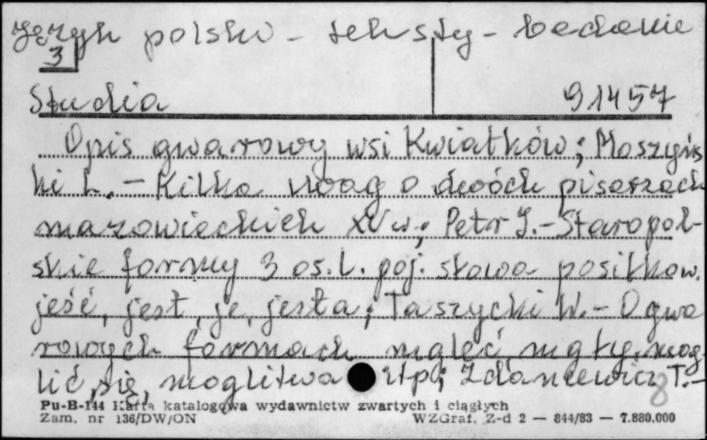 Język polski - teksty - badanie
3
Studia 91457
Opis gwarowy wsi Kwiatków; Moszyńs
ki L. - Kilka uwag o dwóch pisarzach
mazowieckich XV w; Petr J. - Staropol-
skie formy 3 os. l. poj. słowa posiłkow.
jeść, jest, je, jesta; Taszycki W. - O gwa
rowych formach mgleć, mgły, mog-
lić się, moglitwa itp; Zdancewicz T. -
8
Pu-B-144 Karta katalogowa wydawnictw zwartych i ciągłych
Zam. nr 136/DW/ON WZGraf. Z-d 2 — 844/83 — 7.880.000